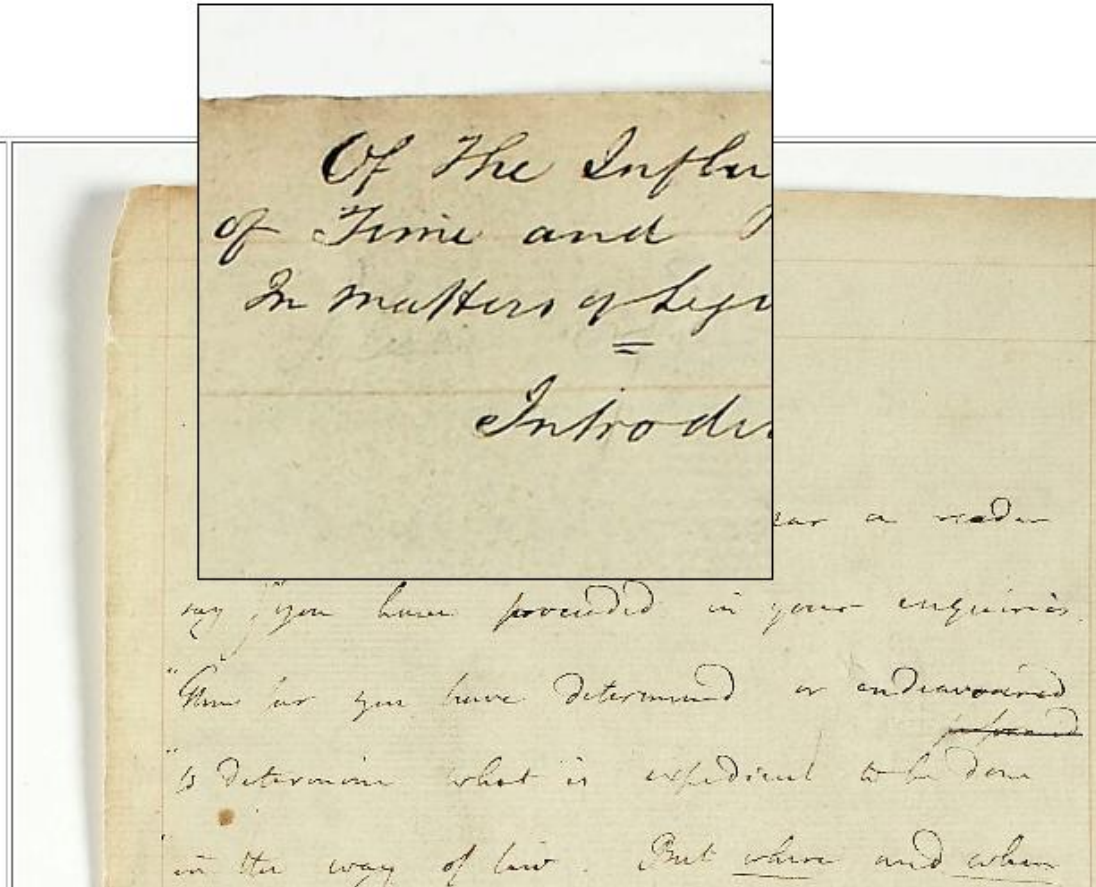 Of The Influ
of Time and P
In matters of Legi
Introdu
ear a reader
say, "you have proceeded in your enquiries.
"Thus far you have determined or endeavoured
"to determine what is expedient to be done
"in the way of law. But where and when